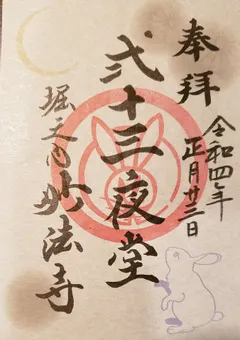 奉拝
令和四年
正月廿三日
弐十三夜堂
堀之内妙法寺